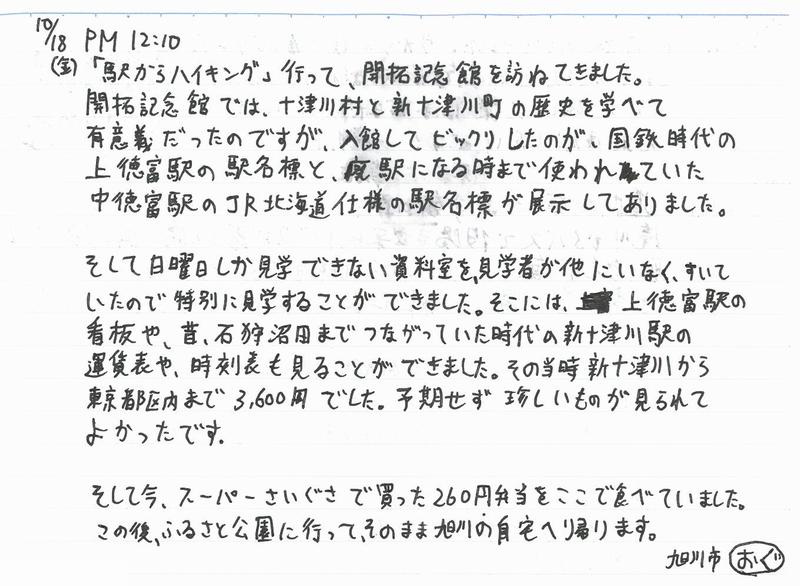 10/18 PM 12:10
(金) 「駅からハイキング」行って、開拓記念館を訪ねてきました。
開拓記念館では、十津川村と新十津川町の歴史を学べて
有意義だったのですが、入館してビックリしたのが、国鉄時代の
上徳富駅の駅名標と、廃駅になる時まで使われていた
中徳富駅のJR北海道仕様の駅名標が展示してありました。
そして日曜日しか見学できない資料室を、見学者が他にいなく、すいて
いたので特別に見学することができました。そこには、上徳富駅の
看板や、昔、石狩沼田までつながっていた時代の新十津川駅の
運賃表や、時刻表も見ることができました。その当時新十津川から
東京都区内まで3,600円でした。予期せず珍しいものが見られて
よかったです。
そして今、スーパーさいぐさで買った260円弁当をここで食べていました。
この後、ふるさと公園に行って、そのまま旭川の自宅へ帰ります。
旭川市 おぐ